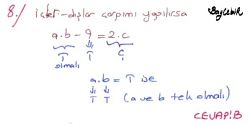 8./ İçler-dışlar çarpımı yapılırsa
a.b - 9 = 2.c
T T Ç
olmalı
a.b = T ise
T T (a ve b tek olmalı)
CEVAP: B